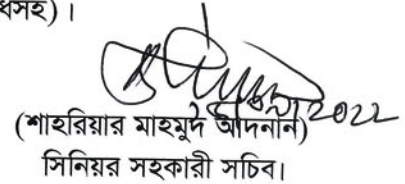 ধসহ) ।
2022
(শাহরিয়ার মাহমুদ আদনান)
সিনিয়র সহকারী সচিব।